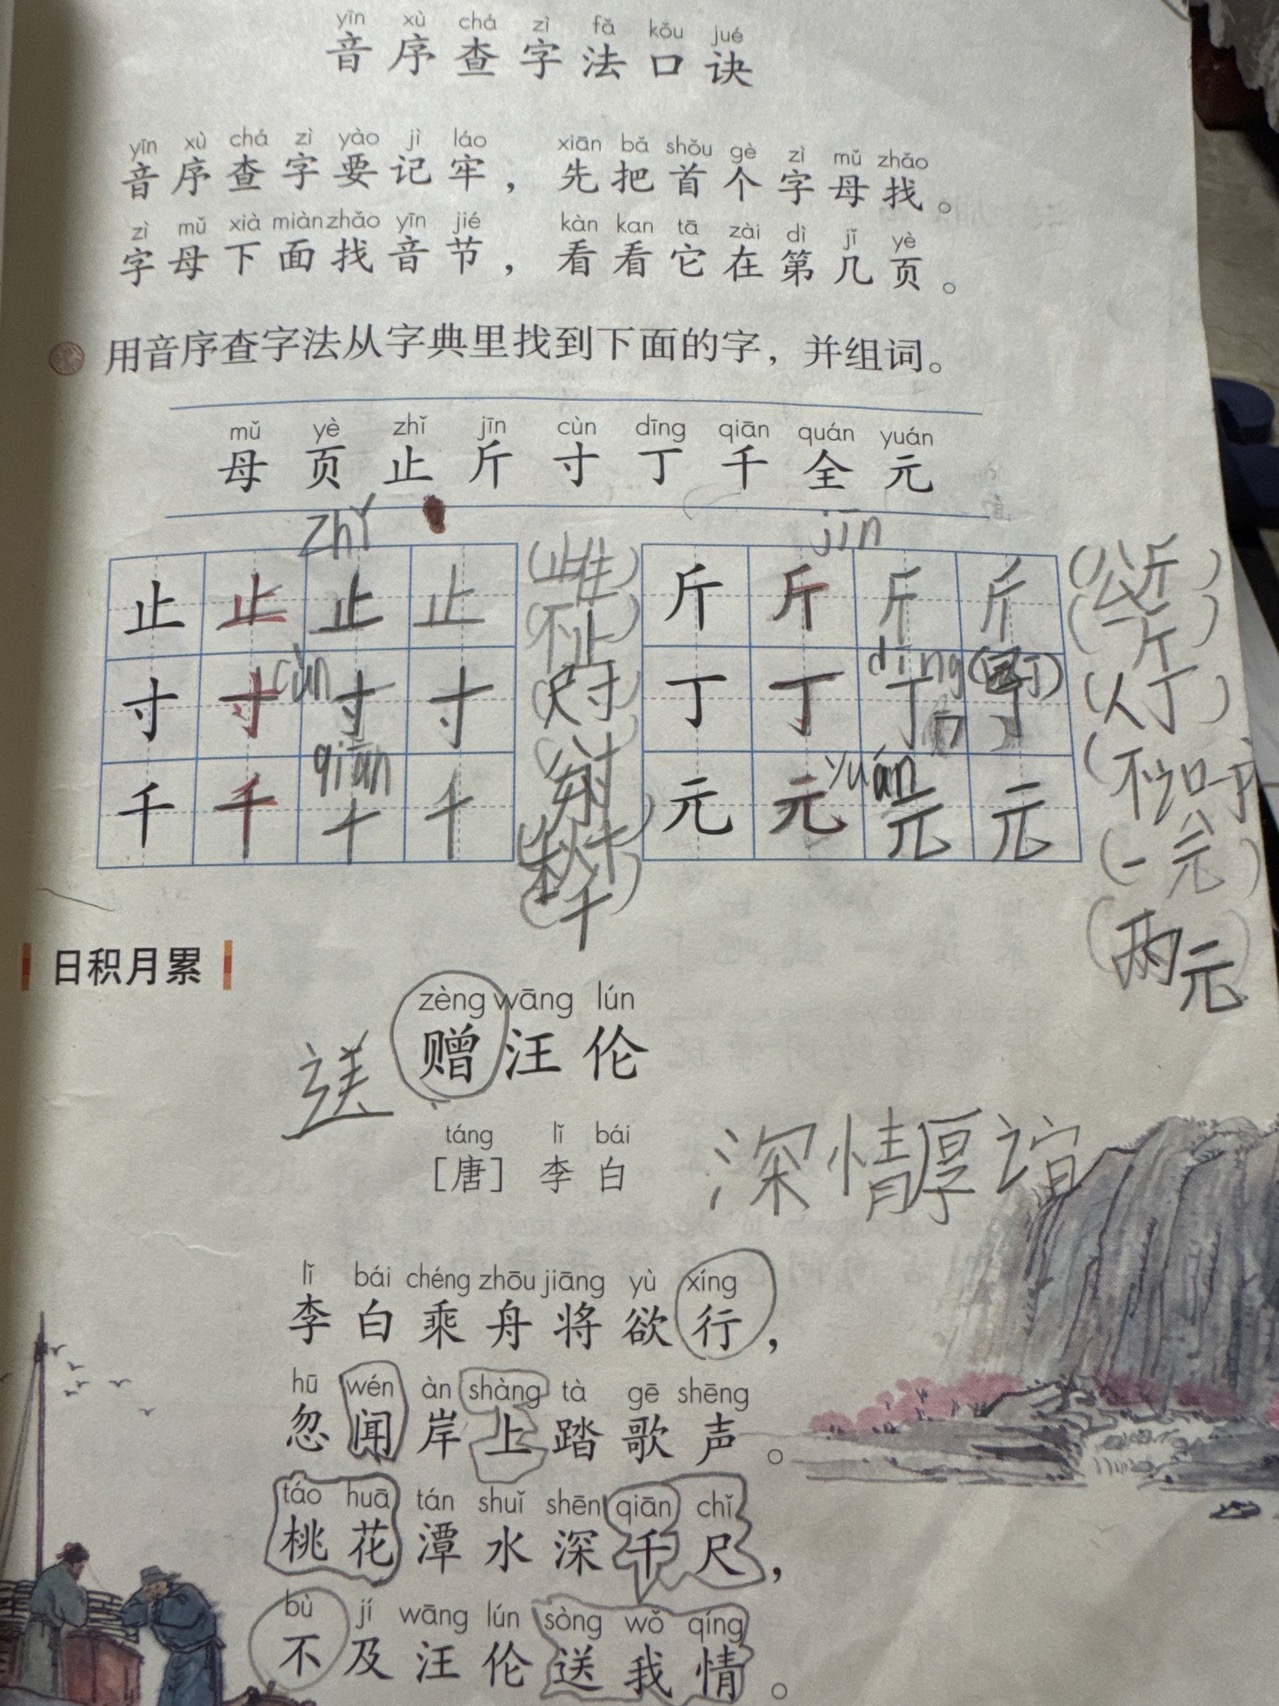 yīn xù chá zì fǎ kǒu jué
音序查字法口诀
yīn xù chá zì yào jì láo xiān bǎ shǒu gè zì mǔ zhǎo
音序查字要记牢，先把首个字母找。
zì mǔ xià miàn zhǎo yīn jié kàn kan tā zài dì jǐ yè
字母下面找音节，看看它在第几页。
用音序查字法从字典里找到下面的字，并组词。
mǔ yè zhǐ jīn cùn dīng qiān quán yuán
母 页 止 斤 寸 丁 千 全 元
zhǐ jīn
止 止 止 止 (止住) 斤 斤 斤 斤 (公斤)
(不止) (一斤)
cùn dīng
寸 寸 寸 寸 (尺寸) 丁 丁 丁 丁 (人丁)
qiān yuán
千 千 千 千 元 元 元 元
(一千) (一元)
(两元)
日积月累
zèng wāng lún
赠汪伦
送
táng lǐ bái
［唐］李白
深情厚谊
lǐ bái chéng zhōu jiāng yù xíng
李白乘舟将欲行，
hū wén àn shàng tà gē shēng
忽闻岸上踏歌声。
táo huā tán shuǐ shēn qiān chǐ
桃花潭水深千尺，
bù jí wāng lún sòng wǒ qíng
不及汪伦送我情。